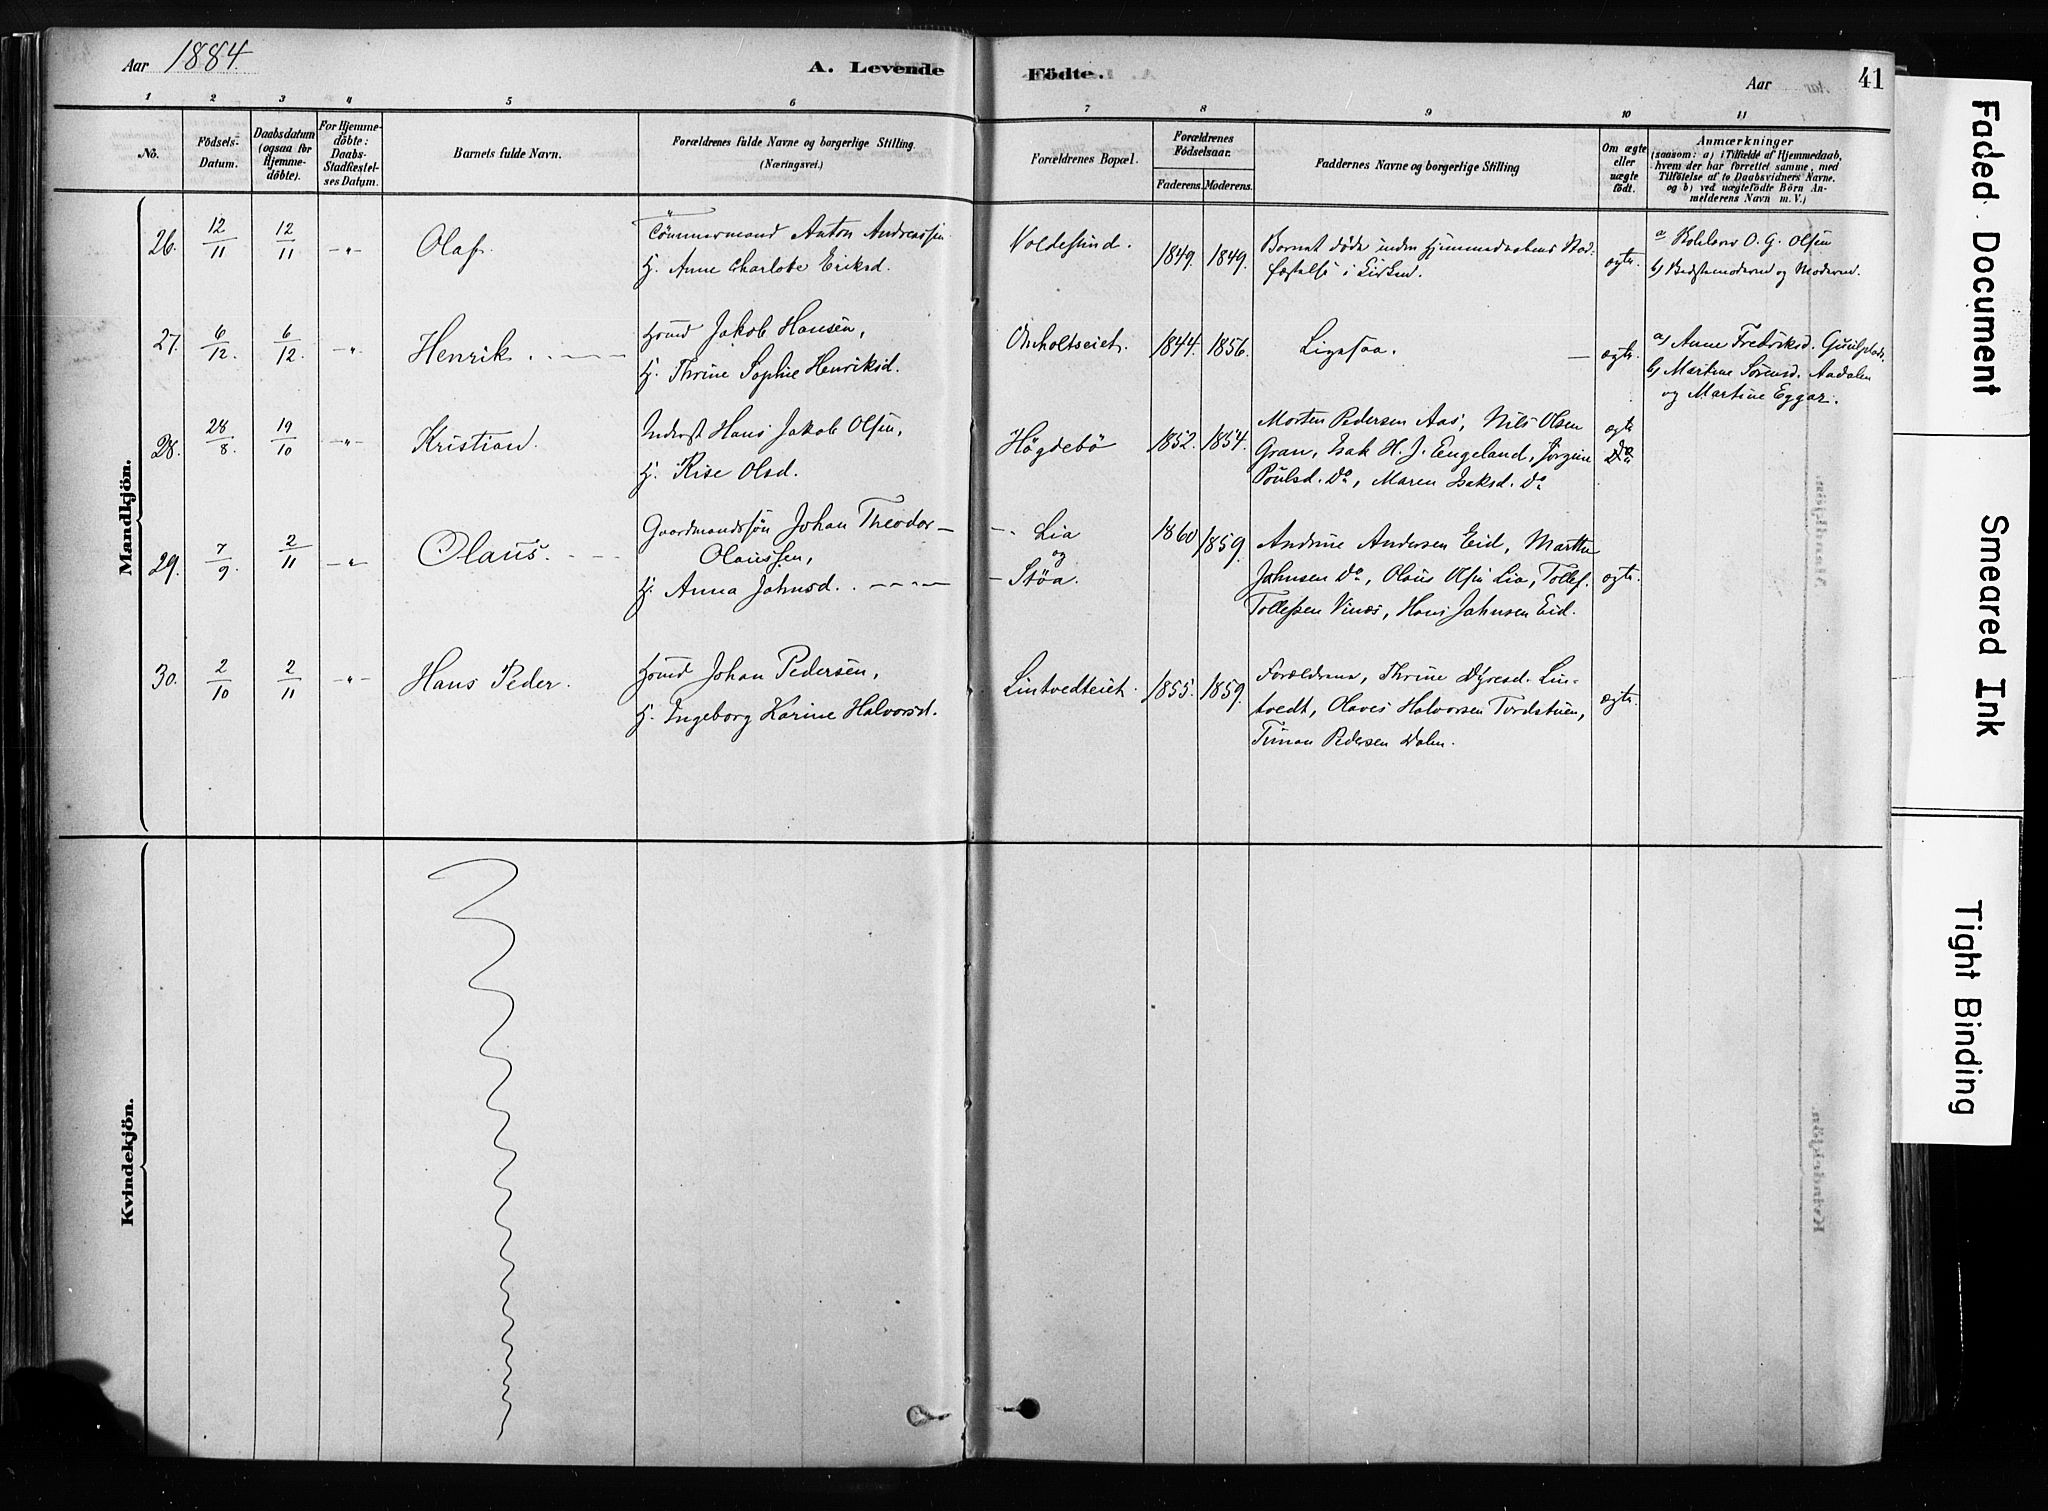 Aar 1884.
A. Levende Födte.
Aar
41
1 2 3 4 5 6 7 8 9 10 11
No.
Födsels-
Datum.
Daabsdatum
(ogsaa for
Hjemme-
döbte).
For Hjemme-
döbte:
Daabs-
Stadfæstel-
ses Datum.
Barnets fulde Navn.
Forældrenes fulde Navne og borgerlige Stilling.
(Næringsvei.)
Forældrenes Bopæl.
Forældrenes
Födselsaar.
Faderens. Moderens.
Faddernes Navne og borgerlige Stilling
Om ægte
eller
uægte
födt.
Anmærkninger
(saasom: a) i Tilfælde af Hjemmedaab,
hvem der har forrettet samme, med
Tilföielse af to Daabsvidners Navne.
og b) ved uægtefödte Börn An-
melderens Navn m. V.)
Mandkjön.
26. 12/11 12/11 -"- Olaf.
Tömmermand Anton Andreassen
H. Anne Charlotte Eriksd.
Voldesund. 1849. 1849.
Barnet døde inden Hjemmedaabens Stad-
fæstelse i Kirken.
ægte.
a O. G. Olsen
b) Bedstemoderen og Moderen.
27. 6/12. 6/12. -"- Henrik.
Hmd Jakob Hansen,
H. Thrine Sophie Henriksd.
Omholtseiet. 1844. 1856.
Ligesaa. —
ægte.
a) Anne Fredriksd.
b) Martine Sörensd. Aadalen
og Martine Eggar.
28. 28/8. 19/10 -"- Kristian.
Inderst Hans Jakob Olsen,
H. Kise Olsd.
Högdebö 1852. 1854.
Morten Pedersen Aas, Nils Olsen
Gran, Isak H. J. Engeland, Jörgine
Poulsd. Do, Maren Isaksd. Do
ægte
Do
29. 7/9. 2/11 -"- Olaus.
Gaardmandssøn Johan Theodor —
Olaussen,
H. Anna Johnsd.
— Lia
og
— Støa.
1860 1859.
Andrine Andersen Eid, Marthe
Johnsen Do, Olaus Olsen Lia, Tollef
Tollefsen Vinæs, Hans Johnsen Eid.
ægte.
30. 2/10 2/11 -"- Hans Peder.
Hmd Johan Pedersen,
H. Ingeborg Karine Halvorsd.
Lintvedteiet. 1855. 1859.
Forældrene, Thrine Dyresd. Lin-
tvedt, Olaves Halvorsen Tvedstuen,
Simon Pedersen Dalen.
ægte.
Kvindekjön.
Faded Document
Smeared Ink
Tight Binding